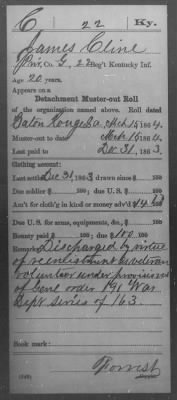 C 22 Ky.
James Cline
Pvt., Co. G, 22 Reg't Kentucky Inf.
Age 20 years.
Appears on a
Detachment Muster-out Roll
of the organization named above. Roll dated
Baton Rouge La, Mch 15, 1864.
Muster-out to date Mch 15, 1864.
Last paid to Dec 31, 1863.
Clothing account:
Last settled Dec 31, 1863; drawn since $ 100
Due soldier $ 100; due U. S. $ 100
Am't for cloth'g in kind or money adv'd $ 44
Due U. S. for arms, equipments, &c., $ 100
Bounty paid $ 100; due $ 100 100
Remarks: Discharged by virtue
of reenlistment as veteran
volunteer under provisions
of Genl order 191 War
Dept series of 163.
Book mark:
Forrest